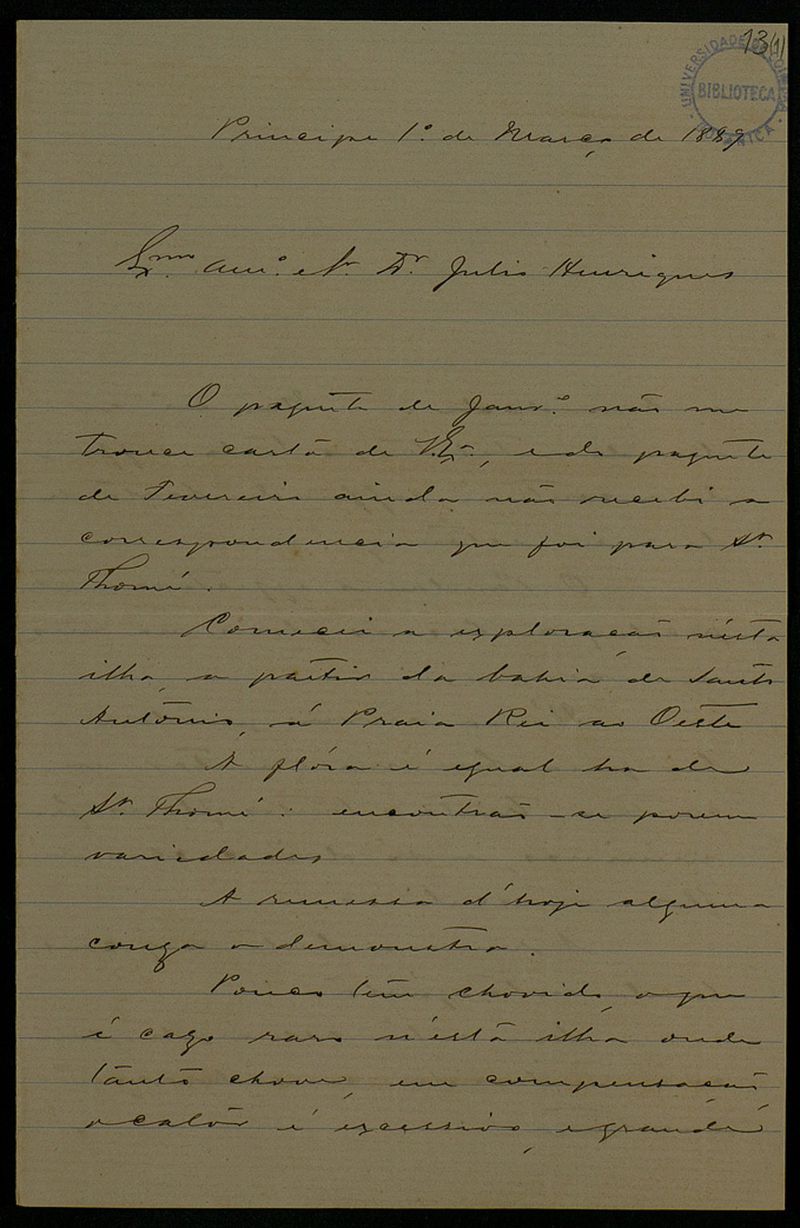 13(1)
UNIVERSIDADE DE COIMBRA
BIBLIOTECA
BOTANICA
Principe 1.º de Março de 1889
Exmo. Am.º e Sr. Dr. Julio Henriques
O paquete de Janr.º não me
trouce carta de V.Ex.ª, e do paquete
de Fevereiro ainda não recebi a
correspondencia que foi para S.
Thomé.
Comecei a exploração n'esta
ilha, a partir da bahia de Santo
António, á Praia Rei ao Oéste
A flóra é egual ha de
S. Thomé: encontrão-se porem
variedades
A remessa d'hoje alguma
couza o demonstra.
Pouco tem chovido, o que
é cazo raro n'ésta ilha onde
tanto chove, em compensação,
o calôr é excessivo, e grande